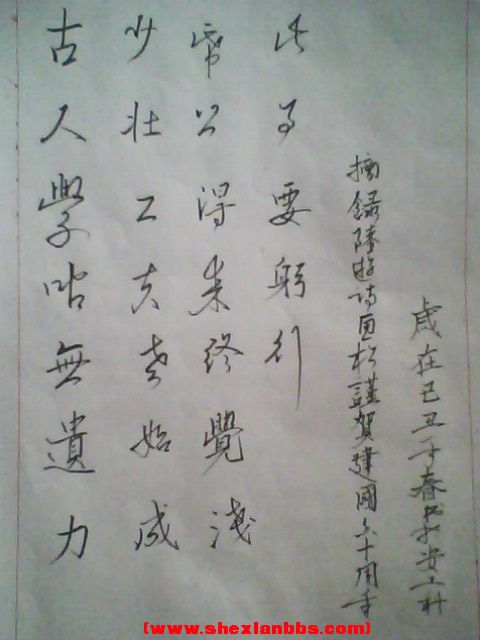 古人學無遺力
少壯工夫老始成
帋上得来終覺淺
此事要躬行
摘錄陸游詩謹賀建國六十周年
歲在己丑年春書於安工科
(www.shexianbbs.com)